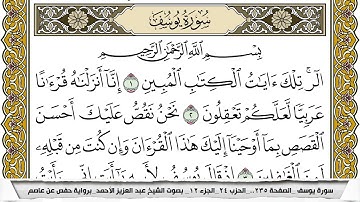 سُورَةُ يُوسُفَ
بِسْمِ ٱللَّهِ ٱلرَّحْمَٰنِ ٱلرَّحِيمِ
الٓر ۚ تِلْكَ ءَايَٰتُ ٱلْكِتَٰبِ ٱلْمُبِينِ ١ إِنَّآ أَنزَلْنَٰهُ قُرْءَٰنًا
عَرَبِيًّا لَّعَلَّكُمْ تَعْقِلُونَ ٢ نَحْنُ نَقُصُّ عَلَيْكَ أَحْسَنَ
ٱلْقَصَصِ بِمَآ أَوْحَيْنَآ إِلَيْكَ هَٰذَا ٱلْقُرْءَانَ وَإِن كُنتَ مِن قَبْلِهِۦ
سورة يوسف _الصفحة ٢٣٥_ الحزب ٢٤_ الجزء ١٢_ بصوت الشيخ عبد العزيز الأحمد_ برواية حفص عن عاصم